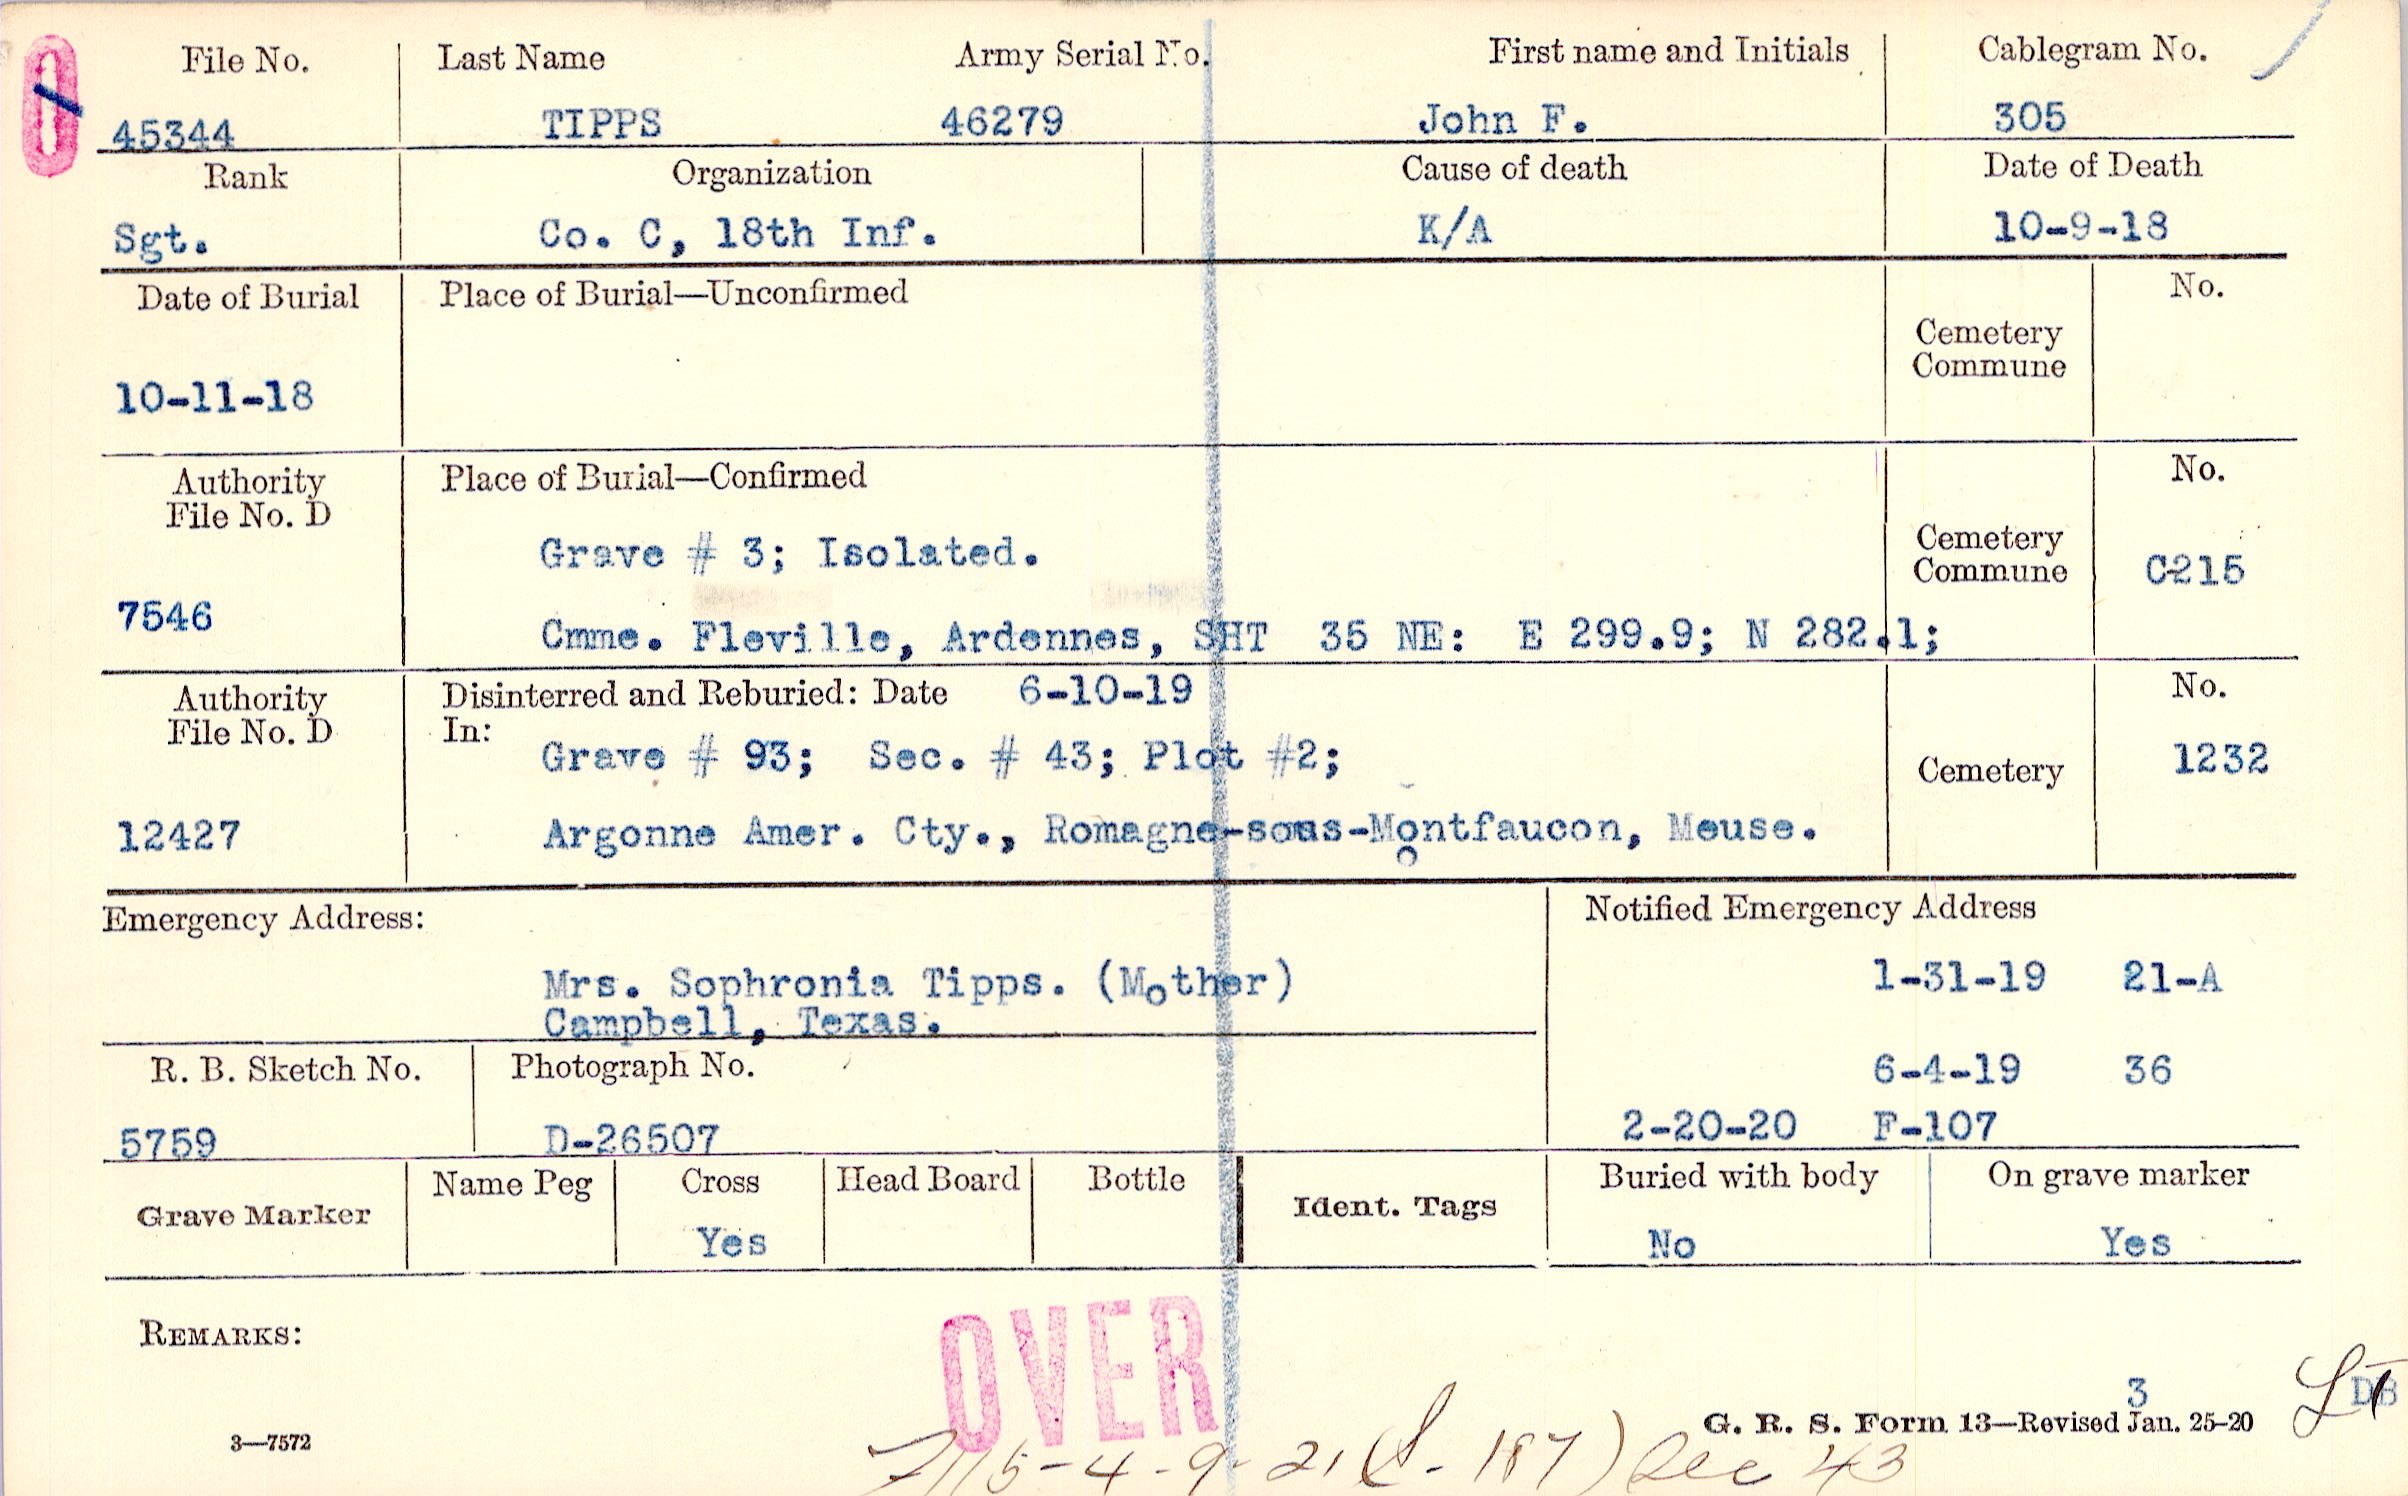 0
File No. Last Name Army Serial No. First name and Initials Cablegram No.
45344 TIPPS 46279 John F. 305
Rank Organization Cause of death Date of Death
Sgt. Co. C, 18th Inf. K/A 10-9-18
Date of Burial Place of Burial—Unconfirmed No.
Cemetery
Commune
10-11-18
Authority Place of Burial—Confirmed No.
File No. D
Grave # 3; Isolated. Cemetery
Commune C215
7546 Cmme. Fleville, Ardennes, SHT 35 NE: E 299.9; N 282.1;
Authority Disinterred and Reburied: Date 6-10-19 No.
File No. D In:
Grave # 93; Sec. # 43; Plot #2; Cemetery 1232
12427 Argonne Amer. Cty., Romagne-sous-Montfaucon, Meuse.
Emergency Address: Notified Emergency Address
Mrs. Sophronia Tipps. (Mother) 1-31-19 21-A
Campbell, Texas.
R. B. Sketch No. Photograph No. 6-4-19 36
5759 D-26507 2-20-20 F-107
Grave Marker Name Peg Cross Head Board Bottle Ident. Tags Buried with body On grave marker
Yes No Yes
REMARKS:
OVER
3
3—7572 G. R. S. Form 13—Revised Jan. 25-20
5-4-9-21 - 187) Sec 43